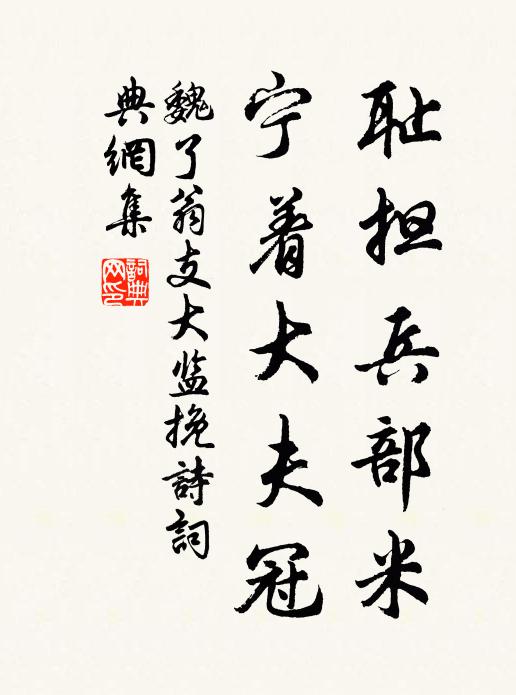 耻担兵部米
宁着大夫冠
魏了翁支大监挽詩詞
典網集
詞典网印